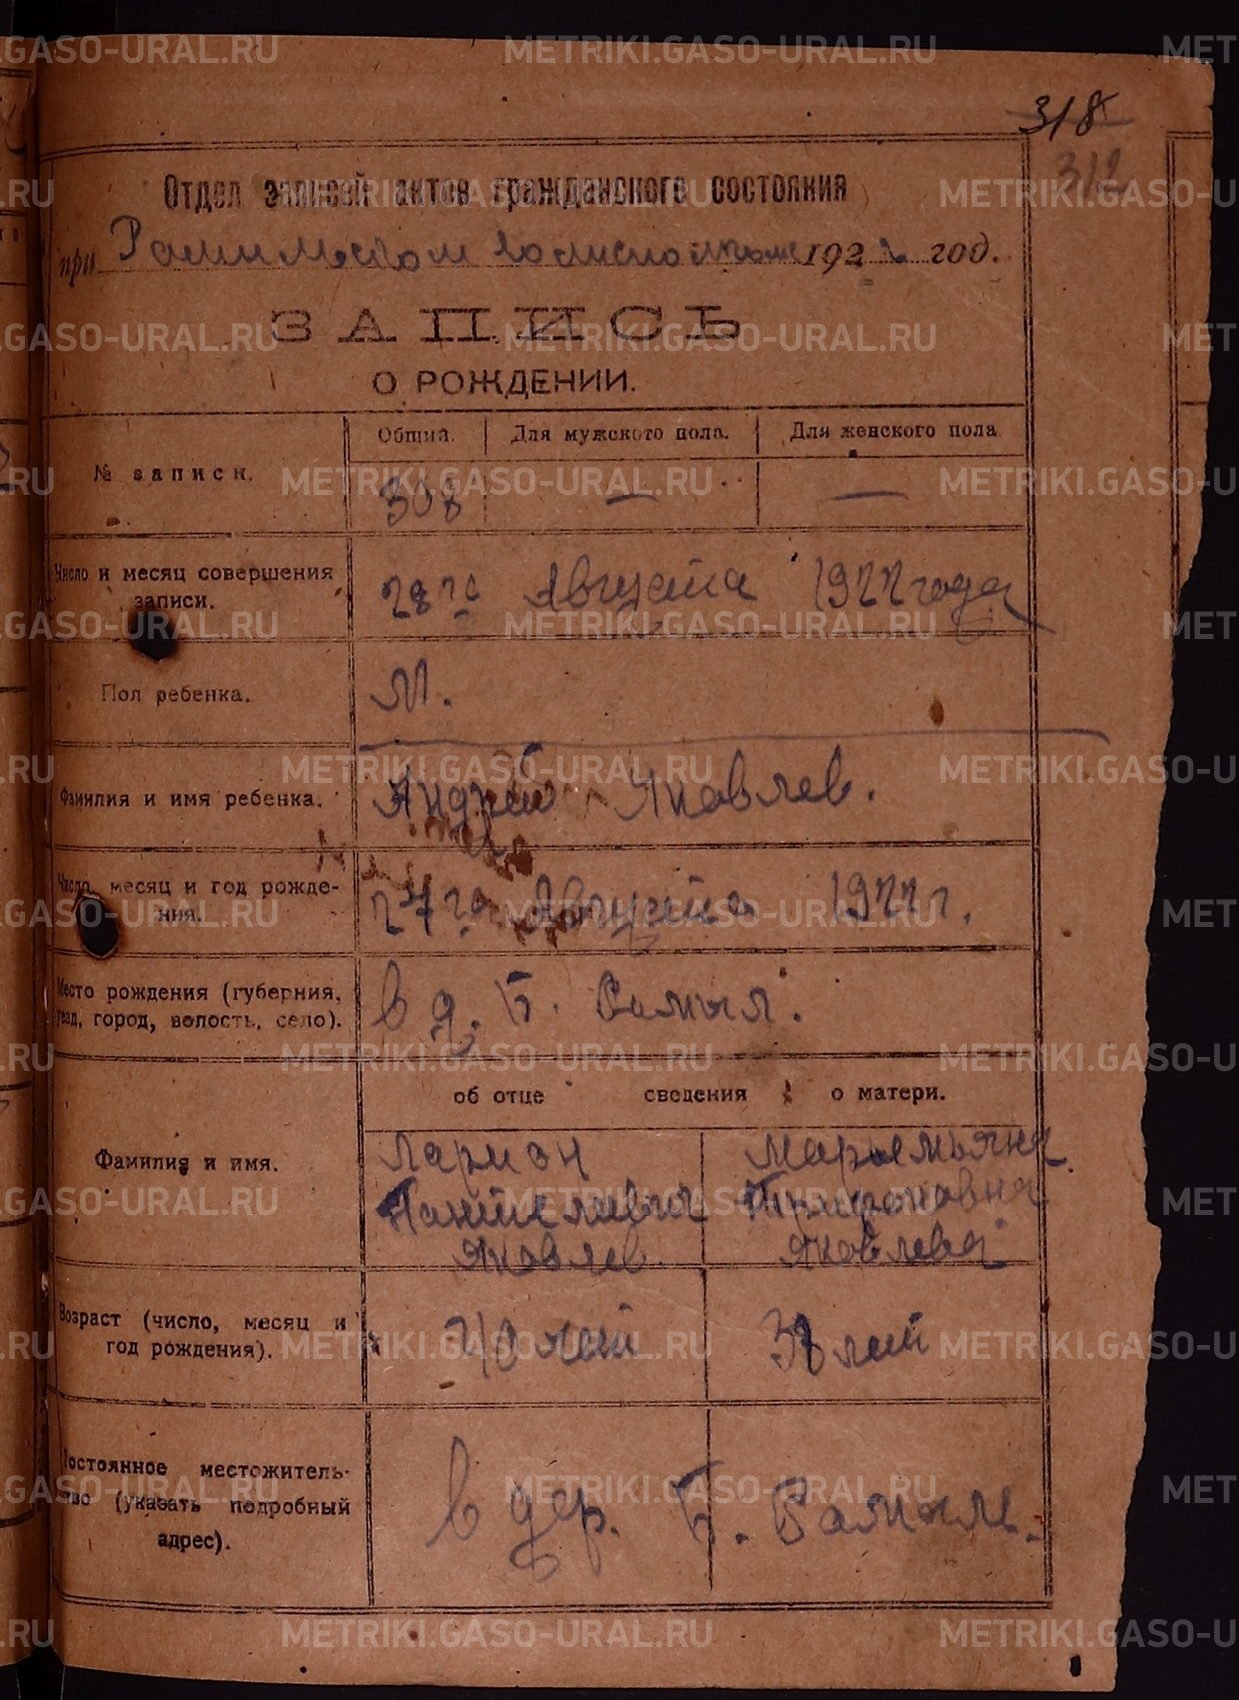 318
312
Отдел записей актов гражданского состояния
при 1922 год.
ЗАПИСЬ
О РОЖДЕНИИ.
№ записи.
Общий. Для мужского пола. Для женского пола.
308 — —
Число и месяц совершения записи.
28 го Августа 1922 года
Пол ребенка.
М.
Фамилия и имя ребенка.
Андрей Яковлев.
Число, месяц и год рождения.
24 го Августа 1922 г.
Место рождения (губерния, уезд, город, волость, село).
в д. Б.
об отце сведения о матери.
Фамилия и имя.
Ларион
Яковлев
Яковлева
Возраст (число, месяц и год рождения).
40 лет 38 лет
Постоянное местожительство (указать подробный адрес).
в дер. Б.
METRIKI.GASO-URAL.RU